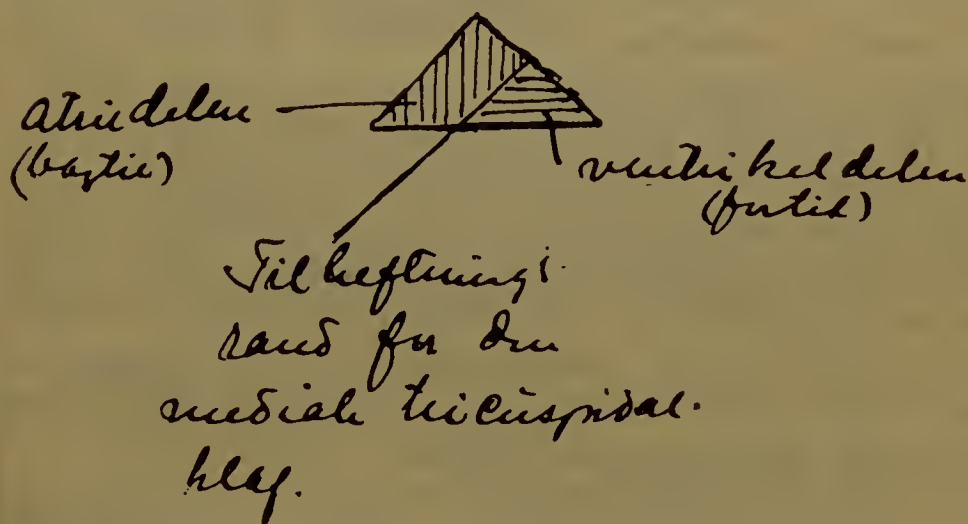 atriedelen
(bagtil)
ventrikeldelen
(fortil)
Tilheftnings-
rand for den
mediale tricuspidal-
klap.